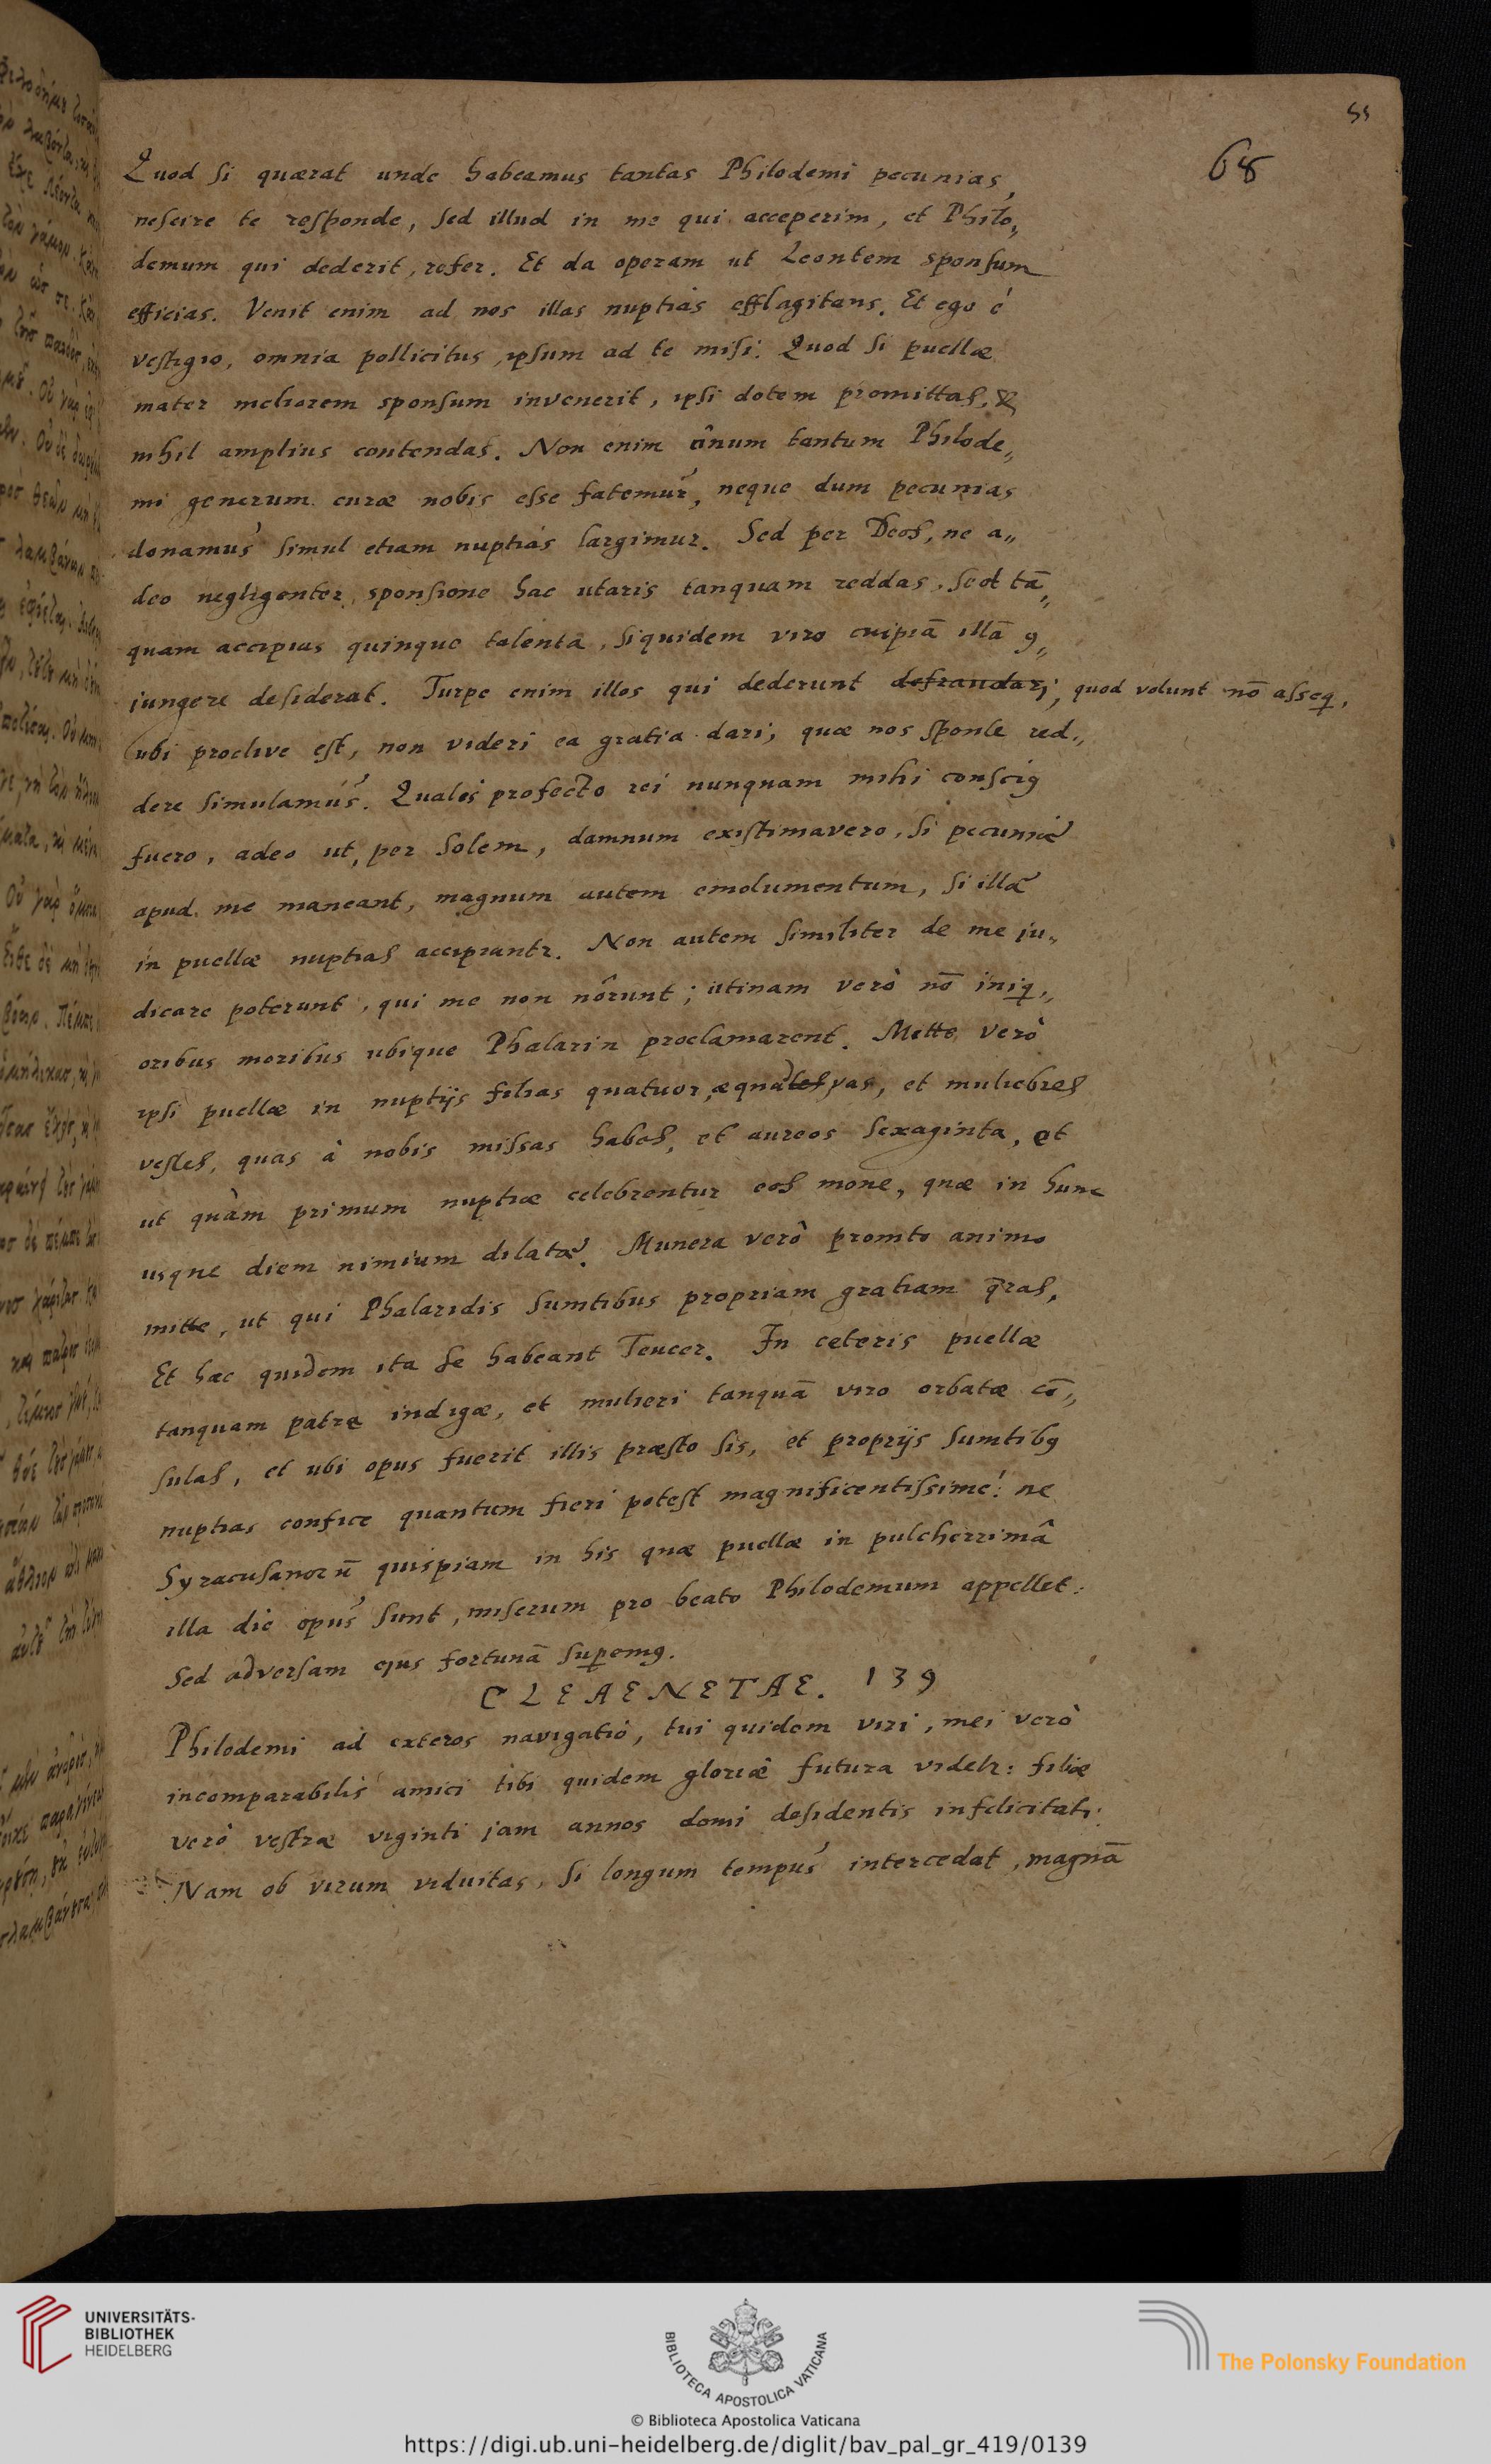 55
68
Quod si quærat unde habeamus tantas Philodemi pecunias,
nescire te responde, sed illud in me qui acceperim, et Philo„
demum qui dederit, refer. Et da operam ut Leontem sponsum
efficias. Venit enim ad nos illas nuptias efflagitans. Et ego è
vestigio, omnia pollicitus, ipsum ad te misi. Quod si puellæ
mater meliorem sponsum invenerit, ipsi dotem promittas, &
nihil amplius contendas. Non enim unum tantum Philode„
mi generum curæ nobis esse fatemur, neque dum pecunias
donamus simul etiam nuptias largimur. Sed per Deos, ne a„
deo negligenter sponsione hac utaris tanquam reddas, sed tā„
quam accipias quinque talenta, siquidem viro cuipiā illā 9„
jungere desiderat. Turpe enim illos qui dederunt defraudari, quod volunt nō asseq.
ubi proclive est, non videri ea gratia dari, quæ nos sponte red„
dere simulamus. Quales profecto rei nunquam mihi conscig
fuero, adeo ut, per Solem, damnum existimavero, si pecuniæ
apud me maneant, magnum autem emolumentum, si illæ
in puellæ nuptias accipiantr. Non autem similiter de me ju„
dicare poterunt, qui me non nôrunt; utinam verò nō iniq„
oribus moribus ubique Phalarin proclamarent. Mitte verò
ipsi puellæ in nuptijs filias quatuor, æquales vas, et muliebres
vestes, quas à nobis missas habes, et aureos sexaginta, et
ut quàm primum nuptiæ celebrentur eos mone, quæ in hunc
usque diem nimium dilatæ. Munera verò promto animo
mitte, ut qui Phalaridis sumtibus propriam gratiam q̄ras.
Et hæc quidem ita se habeant Teucer. In ceteris puellæ
tanquam patre indigæ, et mulieri tanquā viro orbatæ cō„
sulas, et ubi opus fuerit illis præsto sis, et proprijs sumtib9
nuptias confice quantum fieri potest magnificentissimè: ne
Syracusanorū quispiam in his quæ puellæ in pulcherrimâ
illa die opus sunt, miserum pro beato Philodemum appellet:
sed adversam ejus fortunā supem9.
CLEAENETAE. 139
Philodemi ad exteros navigatio, tui quidem viri, mei verò
incomparabilis amici tibi quidem gloriæ futura videtr: filiæ
verò vestræ viginti jam annos domi desidentis infelicitati.
Nam ob virum viduitas, si longum tempus intercedat, magnā
UNIVERSITÄTS-
BIBLIOTHEK
HEIDELBERG
BIBLIOTECA APOSTOLICA VATICANA
The Polonsky Foundation
© Biblioteca Apostolica Vaticana
https://digi.ub.uni-heidelberg.de/diglit/bav_pal_gr_419/0139